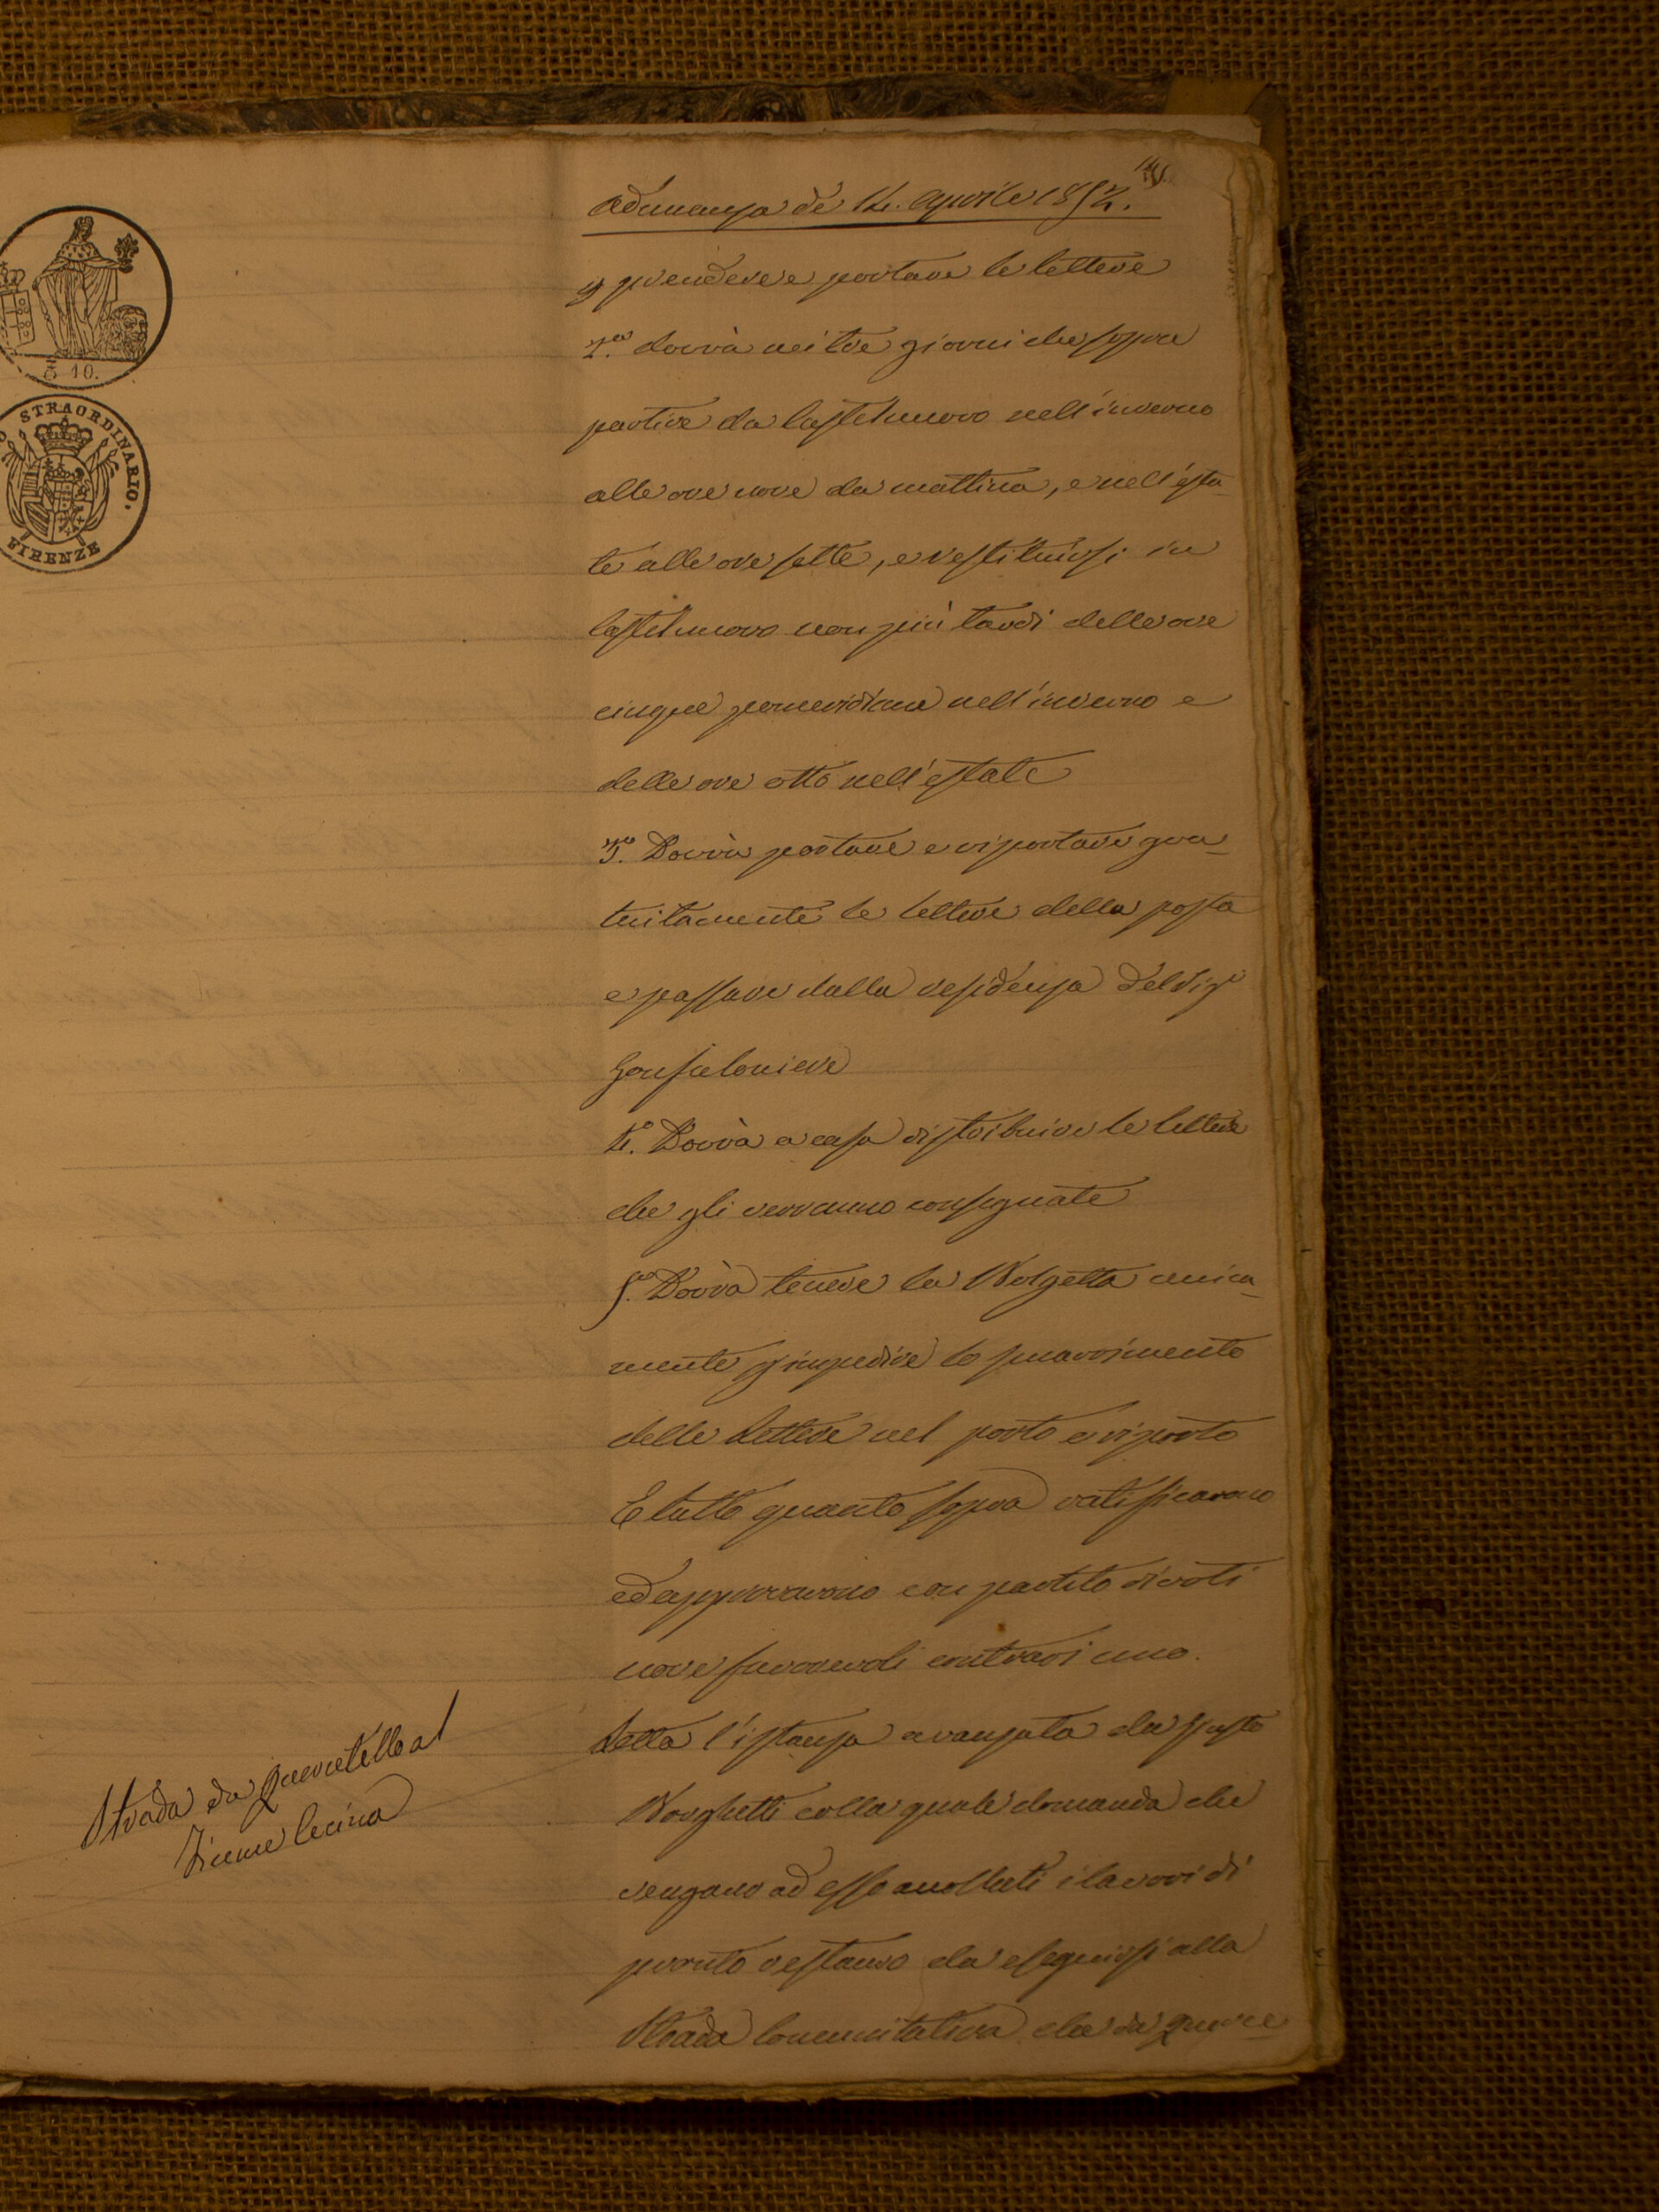 Adunanza de 14. Aprile 1852.
p prendere e portare le lettere
2.º dovrà nei tre giorni che sopra
partire da Castelnuovo nell'inverno
alle ore nove da mattina, e nell'esta-
te alle ore sette, e restituirsi in
Castelnuovo non più tardi delle ore
cinque pomeridiane nell'inverno e
delle ore otto nell'estate
3.º Dovrà portare e riportare gra-
tuitamente le lettere della posta
e passare dalla residenza del Sig.e
Gonfaloniere
4.º Dovrà a casa distribuire le lettere
che gli verranno consegnate
5.º Dovrà tenere la Bolgetta unica-
mente p impedire lo smarrimento
delle Lettere nel porto e riporto
E tutto quanto sopra ratificarono
ed approvarono con partito di voti
nove favorevoli contrari uno.
Strada da Querciatello al
Fiume Cecina
Letta l'istanza avanzata da Giusto
Borghetti colla quale domanda che
vengano ad esso accollati i lavori di
restauro da eseguirsi alla
Strada Comunitativa che da Querce
O STRAORDINARIO.
FIRENZE
10.